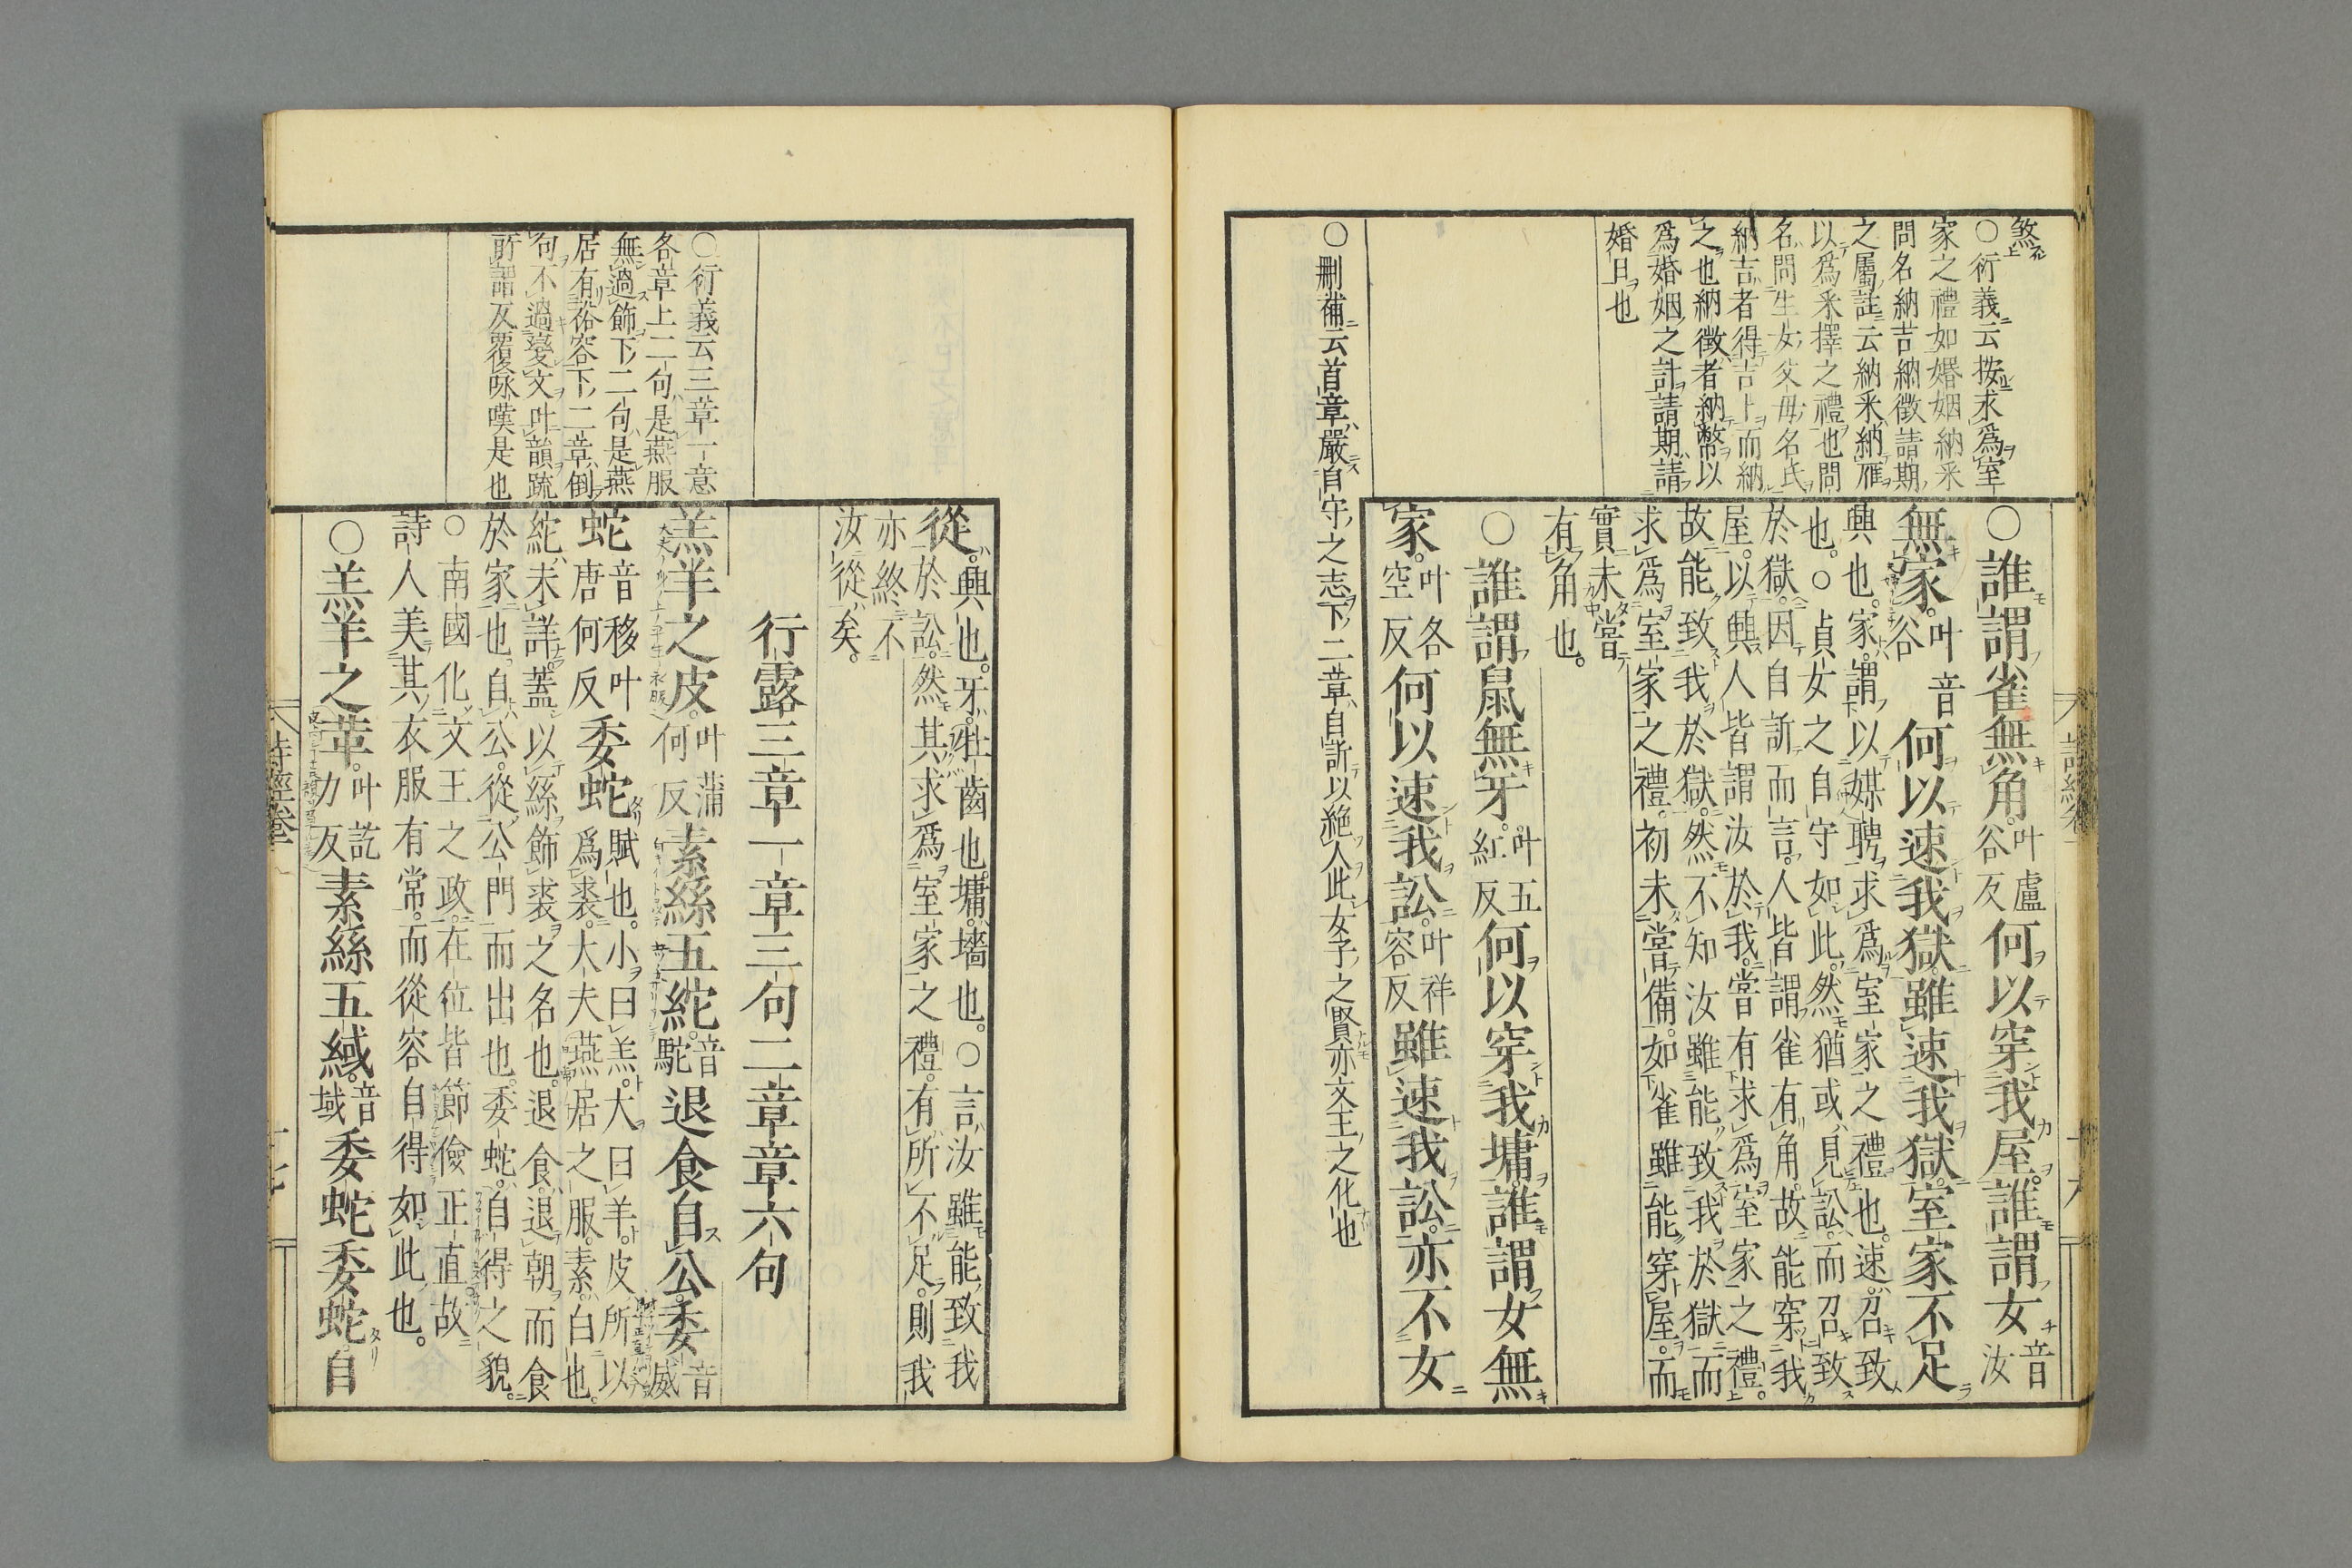 煞
○衍義云按求爲室
家之禮如婚姻納采
問名納吉納徵請期
之屬註云納采納雁
以爲采擇之禮也問
名問生女父母名氏
納吉者得吉卜而納
之也納徵者納幣以
爲婚姻之計請期請
婚日也
○刪補云首章嚴自守之志下二章自訴以絶人此女子之賢亦文王之化也
○誰謂雀無角叶盧谷反何以穿我屋誰謂女音汝
無家叶音谷何以速我獄雖速我獄室家不足
興也家謂以媒聘求爲室家之禮也速召致
也○貞女之自守如此然猶或見訟而召致
於獄因自訴而言人皆謂雀有角故能穿我
屋以興人皆謂汝於我嘗有求爲室家之禮
故能致我於獄然不知汝雖能致我於獄而
求爲室家之禮初未嘗備如雀雖能穿屋而
實未嘗
有角也
○誰謂鼠無牙叶五紅反何以穿我墉誰謂女無
家叶各空反何以速我訟叶祥容反雖速我訟亦不女
從興也牙牡齒也墉墻也○言汝雖能致我
於訟然其求爲室家之禮有所不足則我
亦終不
汝從矣
行露三章一章三句二章章六句
○衍義云三章一意
各章上二句是燕服
無過飾下二句是燕
居有裕容下二章倒
句不過變文叶韻䟽
所謂反覆咏嘆是也
羔羊之皮叶蒲何反素絲五紽音駝退食自公委音威
蛇音移叶唐何反委蛇賦也小曰羔大曰羊皮所以
爲裘大夫燕居之服素白也
紽未詳蓋以絲飾裘之名也退食退朝而食
於家也自公從公門而出也委蛇自得之貌
○南國化文王之政在位皆節儉正直故
詩人美其衣服有常而從容自得如此也
○羔羊之革叶訖力反素絲五緎音域委蛇委蛇自